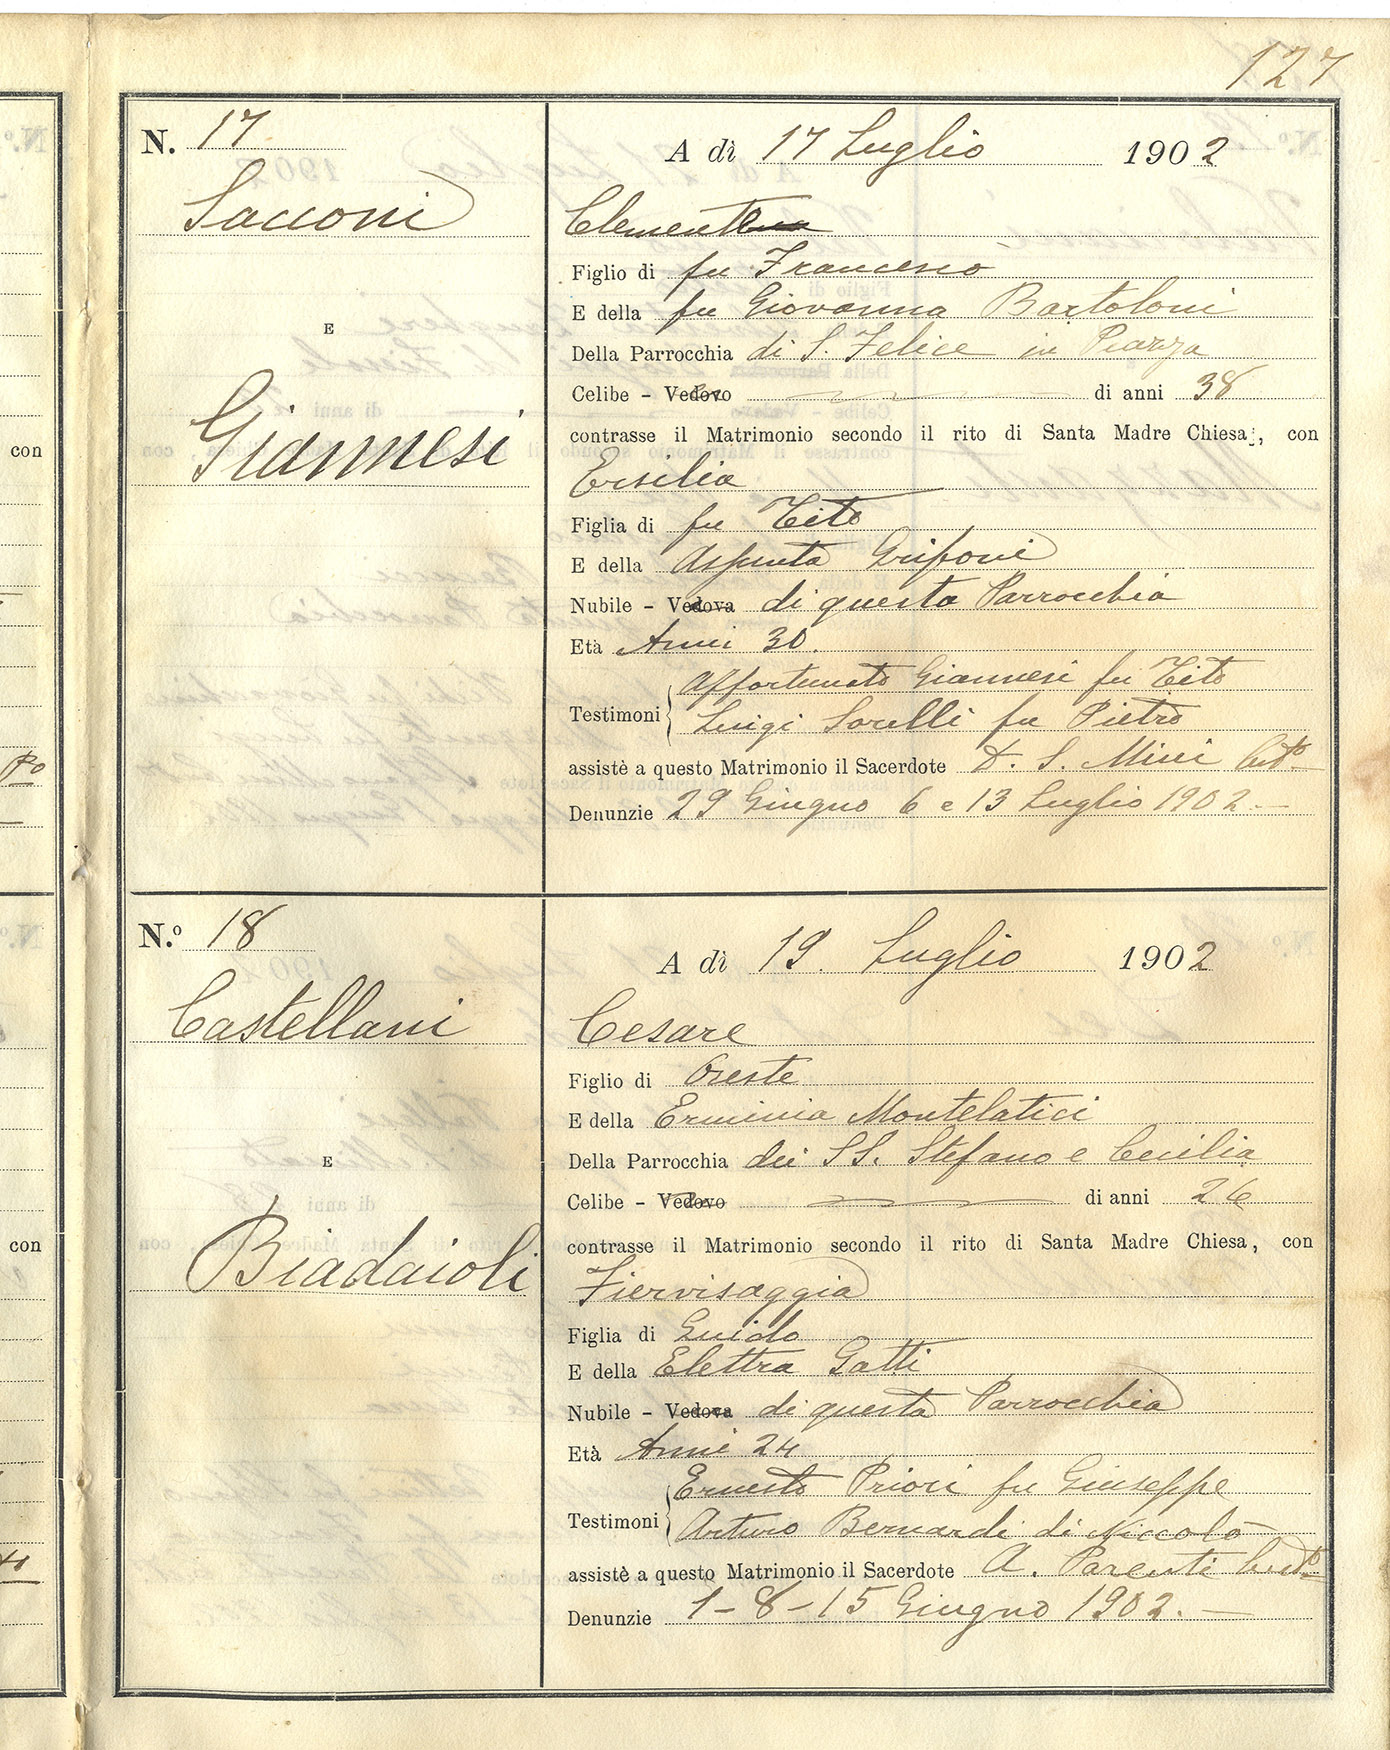 127
N. 17
A dì 17 Luglio 1902
Sacconi
Clemente
Figlio di fu Francesco
E della fu Giovanna Bartoloni
E
Della Parrocchia di S. Felice in Piazza
Celibe - Vedovo di anni 38
Giannesi
contrasse il Matrimonio secondo il rito di Santa Madre Chiesa, con
Ersilia
Figlia di fu Tito
E della Assunta Grifoni
Nubile - Vedova di questa Parrocchia
Età Anni 30.
Affortunato Giannesi fu Tito
Testimoni Luigi Sorelli fu Pietro
assistè a questo Matrimonio il Sacerdote D. S. Mini
Denunzie 29 Giugno 6 e 13 Luglio 1902.—
N.º 18
A dì 19. Luglio 1902
Castellani
Cesare
Figlio di Oreste
E della Erminia Montelatici
E
Della Parrocchia dei SS. Stefano e Cecilia
Celibe - Vedovo di anni 26
Biadaioli
contrasse il Matrimonio secondo il rito di Santa Madre Chiesa, con
Fiervisaggia
Figlia di Guido
E della Elettra Gatti
Nubile - Vedova di questa Parrocchia
Età Anni 24
Ernesto Priori fu Giuseppe
Testimoni Arturo Bernardi di Niccolò
assistè a questo Matrimonio il Sacerdote A. Parenti
Denunzie 1-8-15 Giugno 1902.—
con
con